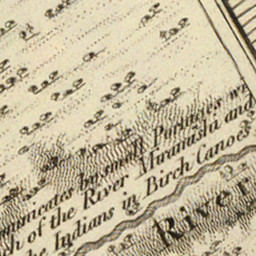 municates by small Portages wi
ch of the River Miramishi and
he Indians in Birch Canoes
River